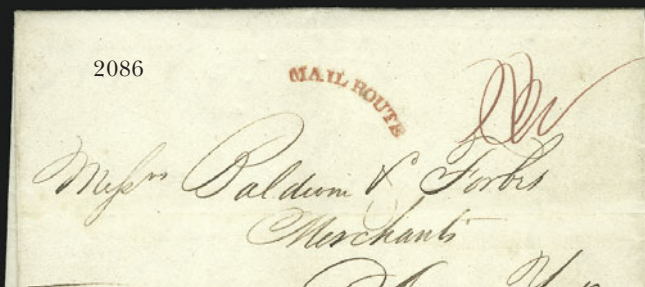 2086
MAIL ROUTE
Messrs Baldwin & Forbes
Merchants